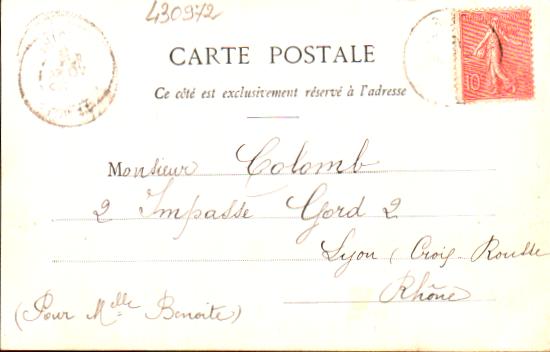 430972
CARTE POSTALE
Ce côté est exclusivement réservé à l'adresse
10
Monsieur Colomb
2 Impasse Gord 2
Lyon (Croix-Rousse
Rhône
(Pour Melle Benoite)